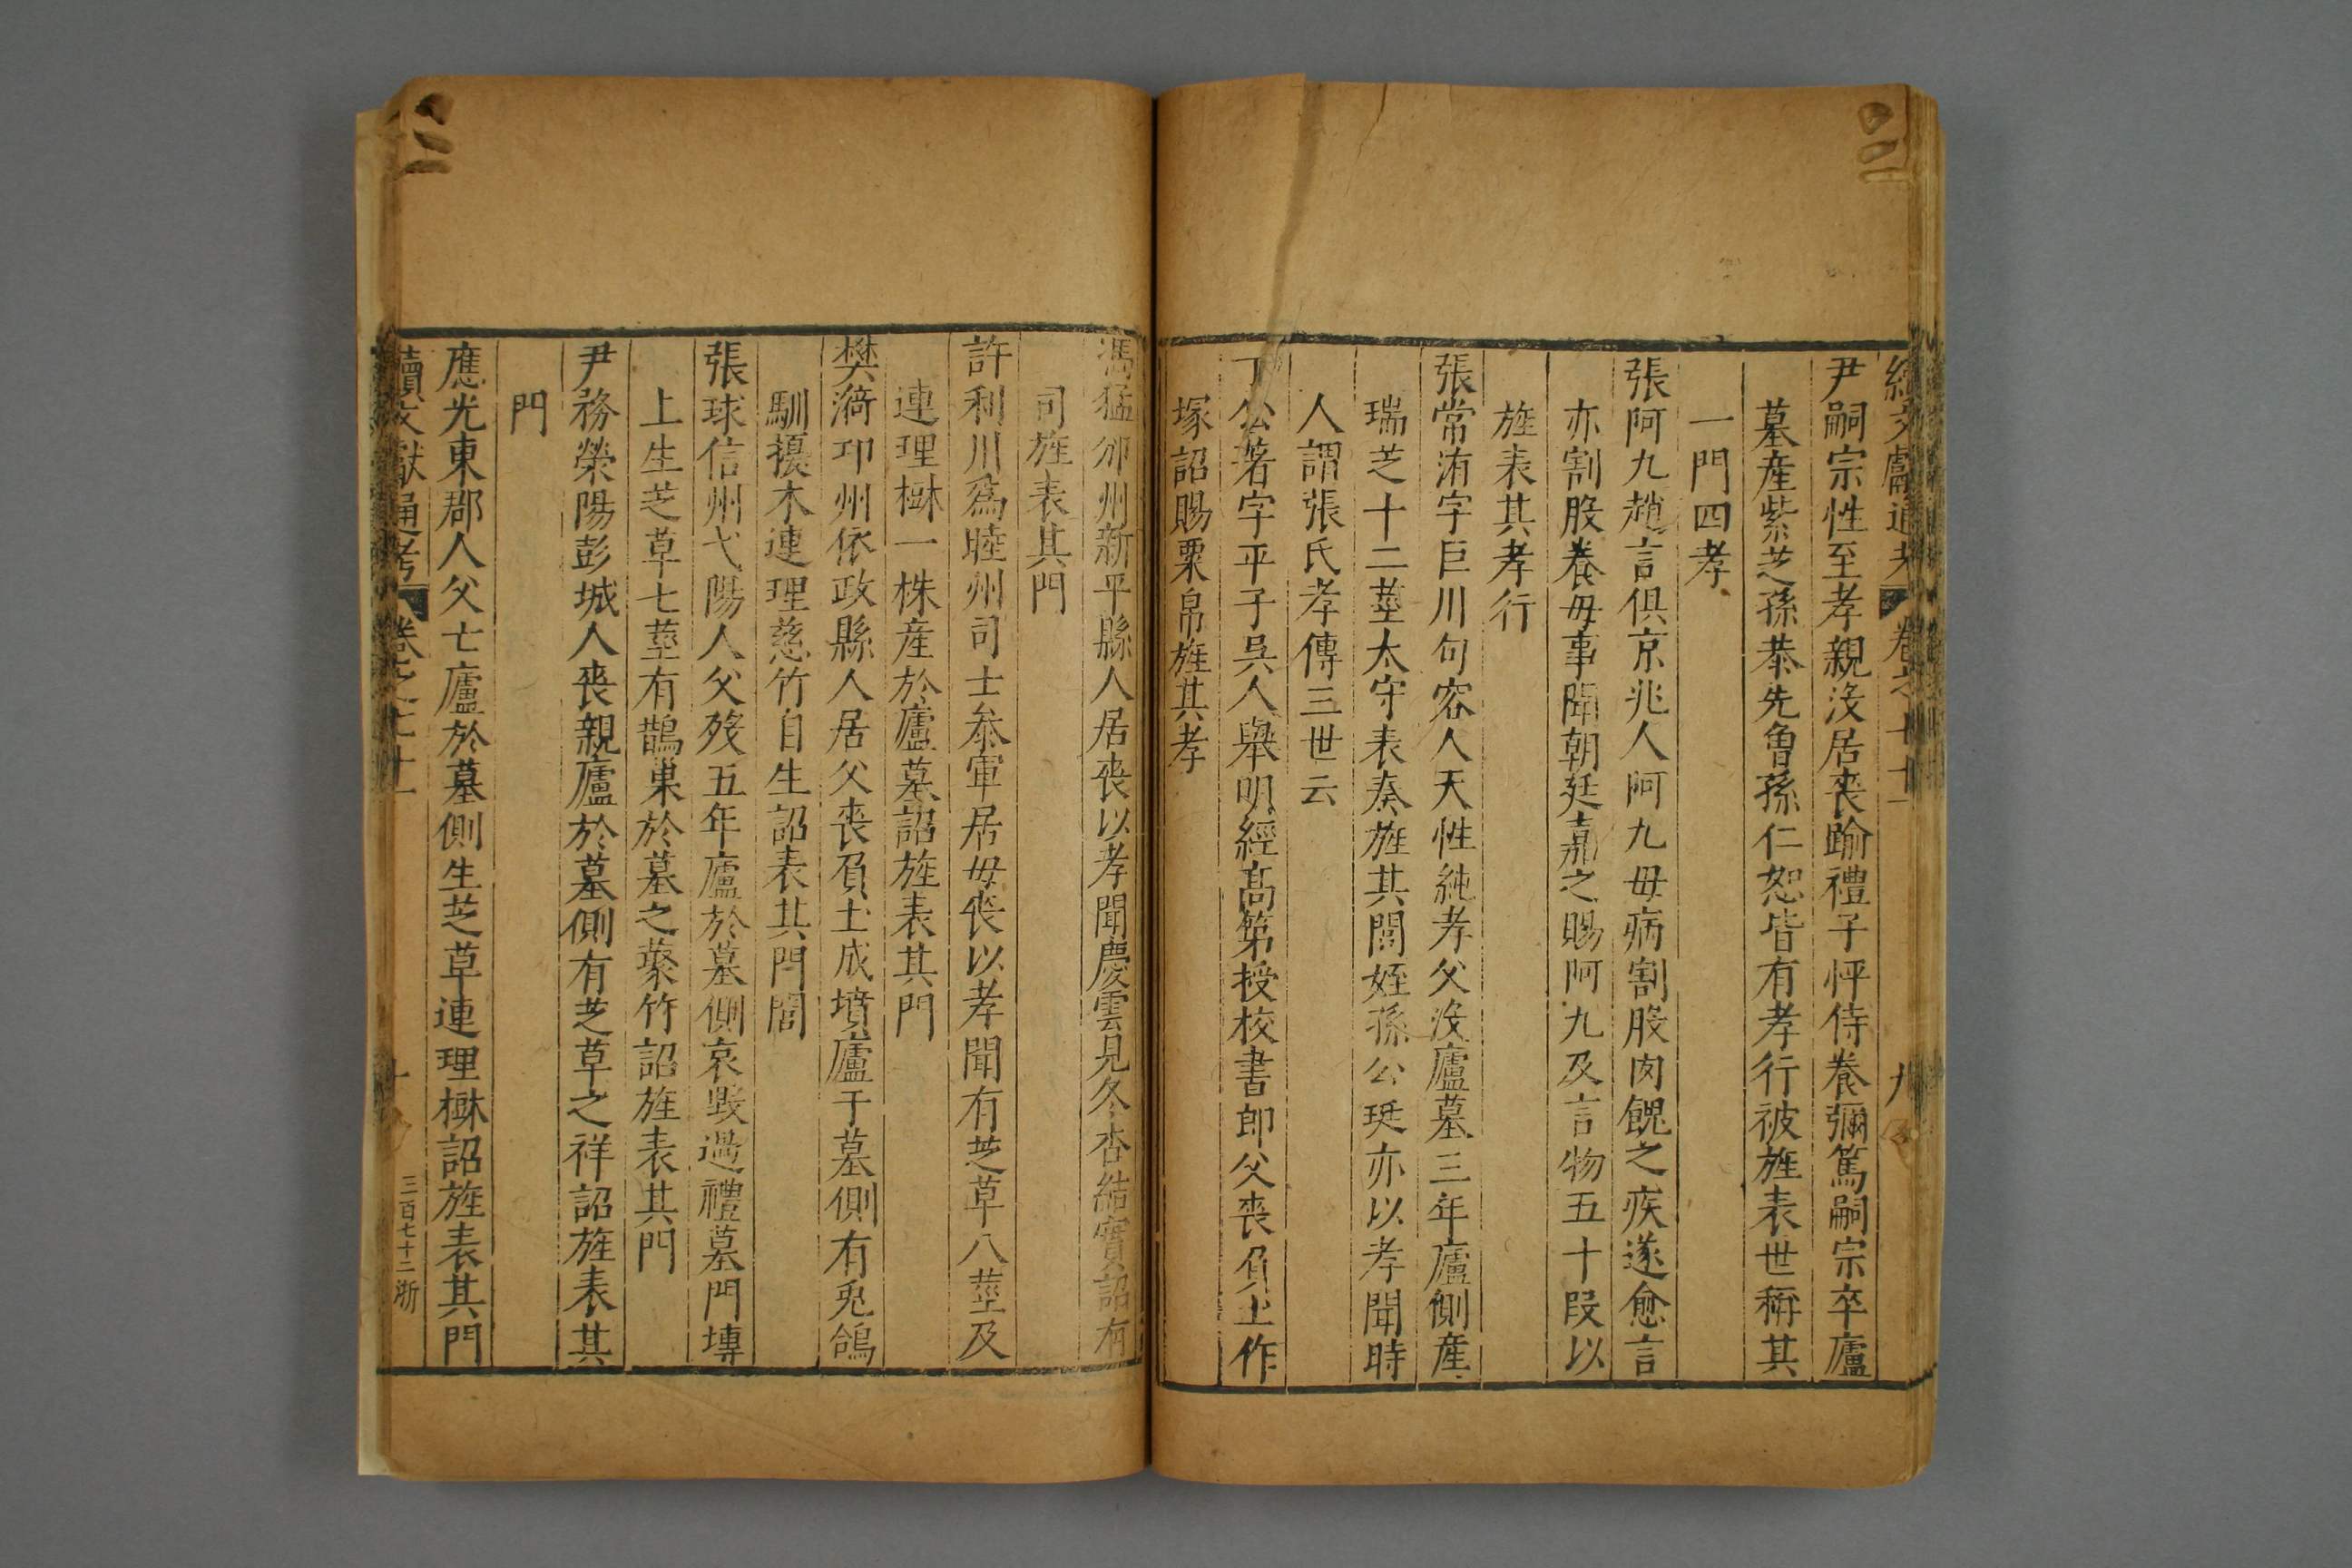 續文獻通考 卷之七十 九
尹嗣宗性至孝親沒居喪踰禮子怦侍養彌篤嗣宗卒廬
墓産紫芝孫恭先魯孫仁恕皆有孝行被旌表世稱其
一門四孝
張阿九趙言俱京兆人阿九毋病割股肉餽之疾遂愈言
亦割股養毋事聞朝廷嘉之賜阿九及言物五十段以
旌表其孝行
張常洧字巨川句容人天性純孝父沒廬墓三年廬側産
瑞芝十二莖太守表奏旌其閭姪孫公珽亦以孝聞時
人謂張氏孝傳三世云
丁公著字平子吳人舉明經高第授校書郎父喪負土作
塚詔賜粟帛旌其孝
馮猛邠州新平縣人居喪以孝聞慶雲見冬杏結實詔有
司旌表其門
許利川爲睦州司士叅軍居毋喪以孝聞有芝草八莖及
連理樹一株産於廬墓詔旌表其門
樊漪邛州依政縣人居父喪負土成墳廬于墓側有兎鴿
馴擾木連理慈竹自生詔表其門閭
張球信州弋陽人父歿五年廬於墓側哀毀過禮墓門塼
上生芝草七莖有鵲巢於墓之藂竹詔旌表其門
尹務榮陽彭城人喪親廬於墓側有芝草之祥詔旌表其
門
應光東郡人父亡廬於墓側生芝草連理樹詔旌表其門
續文獻通考 卷之七十 十
三百七十二 浙